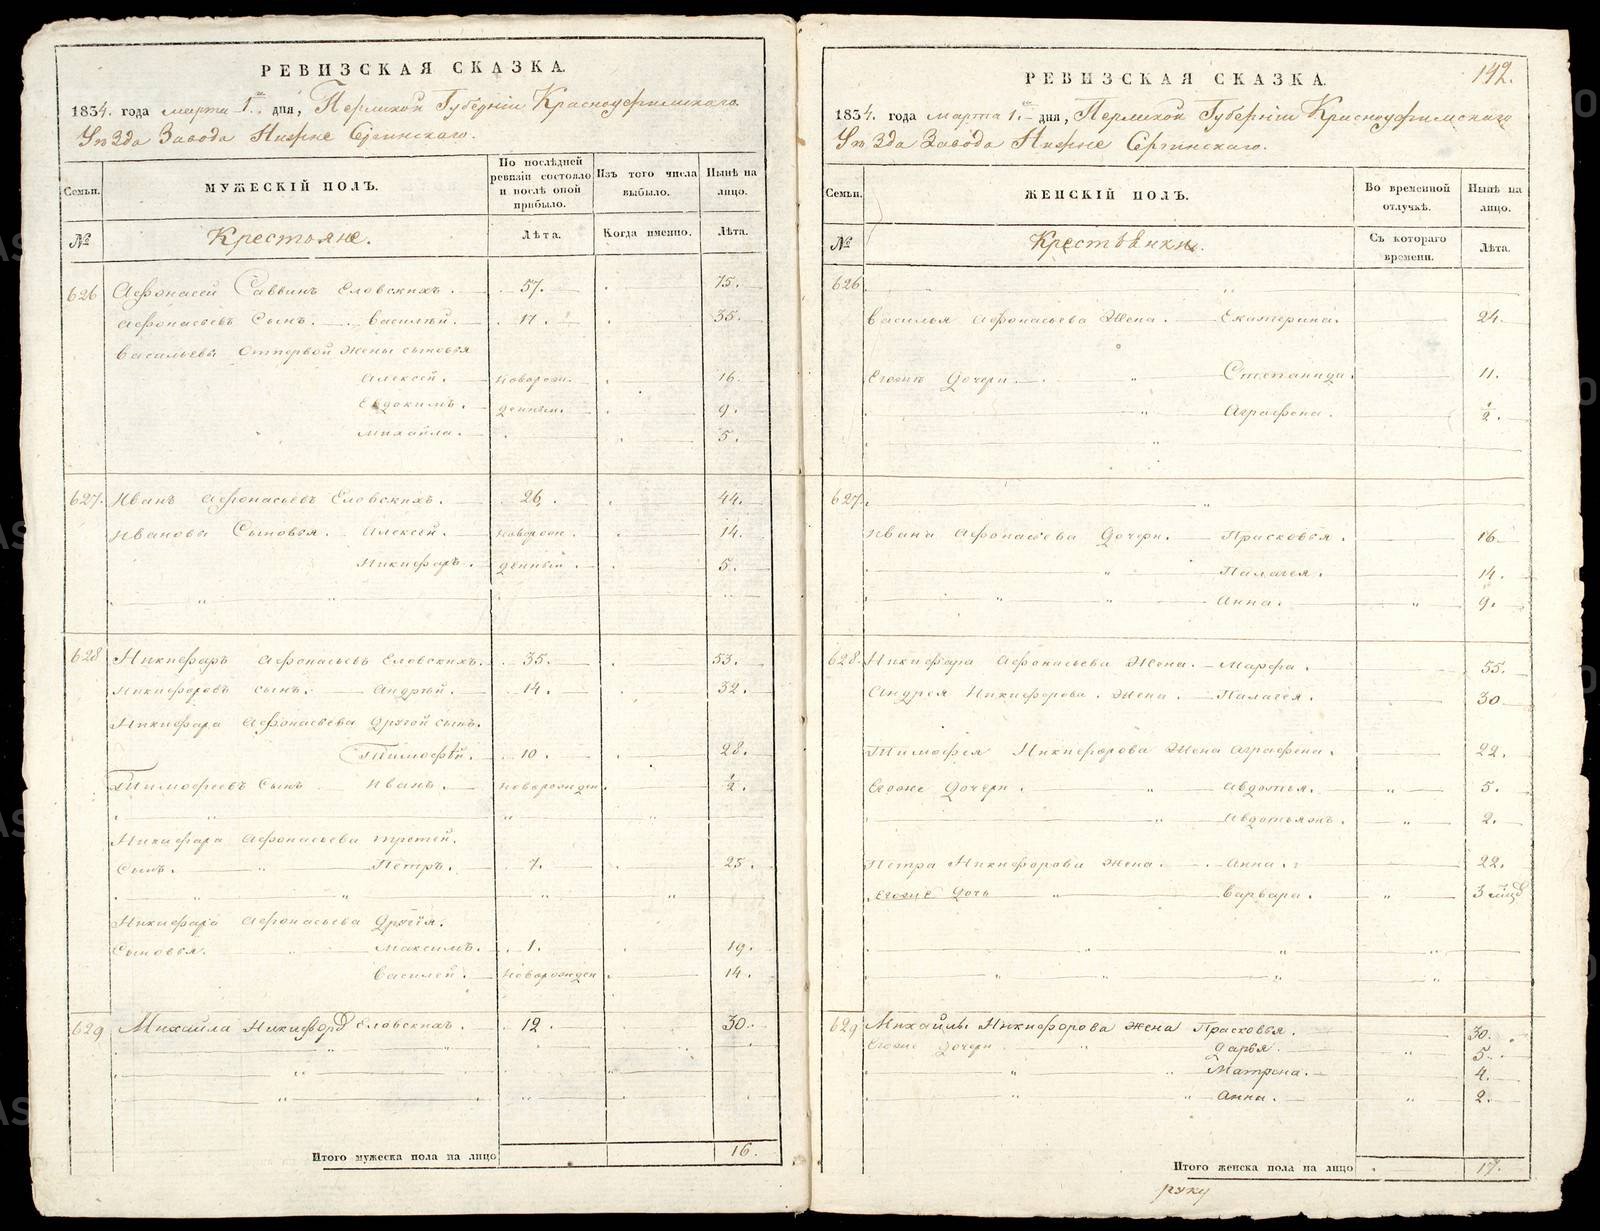 РЕВИЗСКАЯ СКАЗКА.
1834. года марта 1. дня, Пермской Губерніи Красноуфимскаго
Уѣзда Завода Нижне Сергинскаго.
Семьи.
МУЖЕСКІЙ ПОЛЪ.
По послѣдней ревизіи состояло и послѣ оной прибыло.
Изъ того числа выбыло.
Нынѣ на лицо.
№
Крестьяне.
Лѣта.
Когда именно.
Лѣта.
626 Афонасей Саввинъ Еловскихъ. 57. 75.
Афонасьевъ Сынъ. Василѣй. 17. 35.
Васильевы Отпервой жены сыновья
Алексей. новорож- 16.
Евдокимъ. денные. 9.
Михайла. 5.
627. Иванъ Афонасьевъ Еловскихъ. 26. 44.
Ивановы Сыновья. Алексей. новорож. 14.
Никифоръ. денный. 5.
628 Никифоръ Афонасьевъ Еловскихъ. 35. 53.
Никифоровъ сынъ. Андрѣй. 14. 32.
Никифора Афонасьева другой сынъ.
Тимофѣй. 10. 28.
Тимофеевъ Сынъ Иванъ. новорожден. ½.
Никифора Афонасьева третей.
Сынъ. Петръ. 7. 25.
Никифора Афонасьева Другія.
Сыновья. Максимъ. 1. 19.
Василей. Новорожден 14.
629 Михайла Никифоръ Еловскихъ. 12. 30.
Итого мужеска пола на лицо 16.
142.
РЕВИЗСКАЯ СКАЗКА.
1834. года марта 1. дня, Пермской Губерніи Красноуфимскаго
Уѣзда Завода Нижне Сергинскаго.
Семьи.
ЖЕНСКІЙ ПОЛЪ.
Во временной отлучкѣ.
Нынѣ на лицо.
№
Крестьянки.
Съ котораго времени.
Лѣта.
626
Василья Афонасьева Жена. Екатерина. 24.
Егожъ Дочери. Степанида. 11.
Аграфена. ½.
627.
Ивана Афонасьева Дочери. Прасковья. 16.
Палагея. 14.
Анна. 9.
628. Никифора Афонасьева Жена. Марфа. 55.
Андрея Никифорова. Жена. Палагея. 30
Тимофея Никифорова Жена Аграфена. 22.
Егоже Дочери. Авдотья. 5.
2.
Петра Никифорова Жена. Анна. 22.
Егоже Дочь Варвара. 3 мѣс
629 Михайлы Никифорова жена Прасковья. 30.
Егоже дочери Дарья. 5.
Матрена. 4.
Анна. 2.
Итого женска пола на лицо 17.
руку